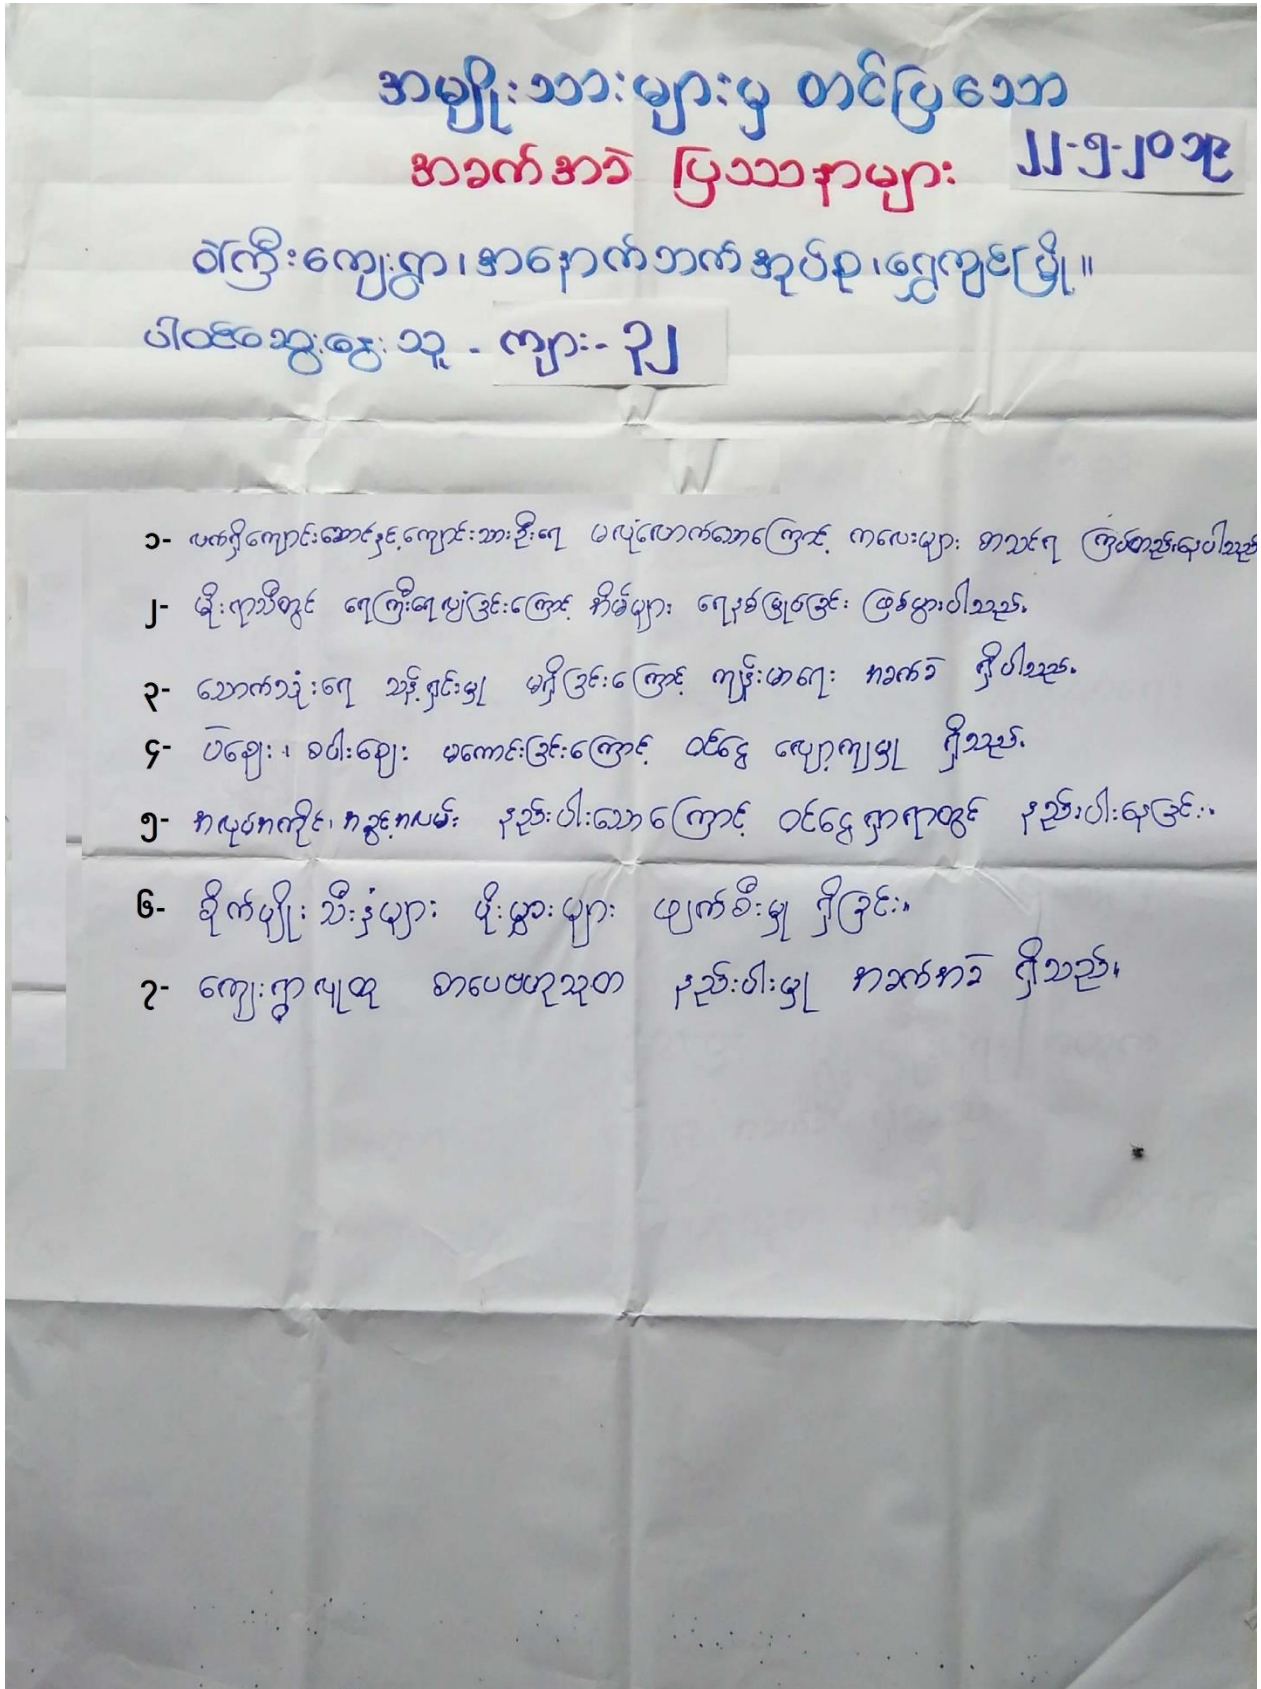 အမျိုးသားများမှ တင်ပြသော
အခက်အခဲ ပြဿနာများ
၂၂-၅-၂၀၁၉
ဝဲကြီးကျေးရွာ၊ အနောက်ဘက်အုပ်စု၊ ရွှေကျင်မြို့။
ပါဝင်ဆွေးနွေးသူ - ကျား- ၃၂
၁- လက်ရှိကျောင်းဆောင်နှင့်ကျောင်းသားဦးရေ မလုံလောက်သောကြောင့် ကလေးများ စာသင်ရ ကြပ်တည်းနေပါသည်
၂- မိုးရာသီတွင် ရေကြီးရေလျှံခြင်းကြောင့် အိမ်များ ရေနစ်မြုပ်ခြင်း ဖြစ်ပွားပါသည်။
၃- သောက်သုံးရေ သန့်ရှင်းမှု မရှိခြင်းကြောင့် ကျန်းမာရေး အခက်ခဲ ရှိပါသည်။
၄- ပဲဈေး၊ စပါးဈေး မကောင်းခြင်းကြောင့် ဝင်ငွေ လျော့ကျမှု ရှိသည်။
၅- အလုပ်အကိုင်၊ အခွင့်အလမ်း နည်းပါးသောကြောင့် ဝင်ငွေရှာရာတွင် နည်းပါးနေခြင်း။
၆- စိုက်မျိုးသီးနှံများ ပိုးမွှားများ ဖျက်စီးမှု ရှိခြင်း။
၇- ကျေးရွာလူထု စာပေဗဟုသုတ နည်းပါးမှု အခက်အခဲ ရှိသည်။